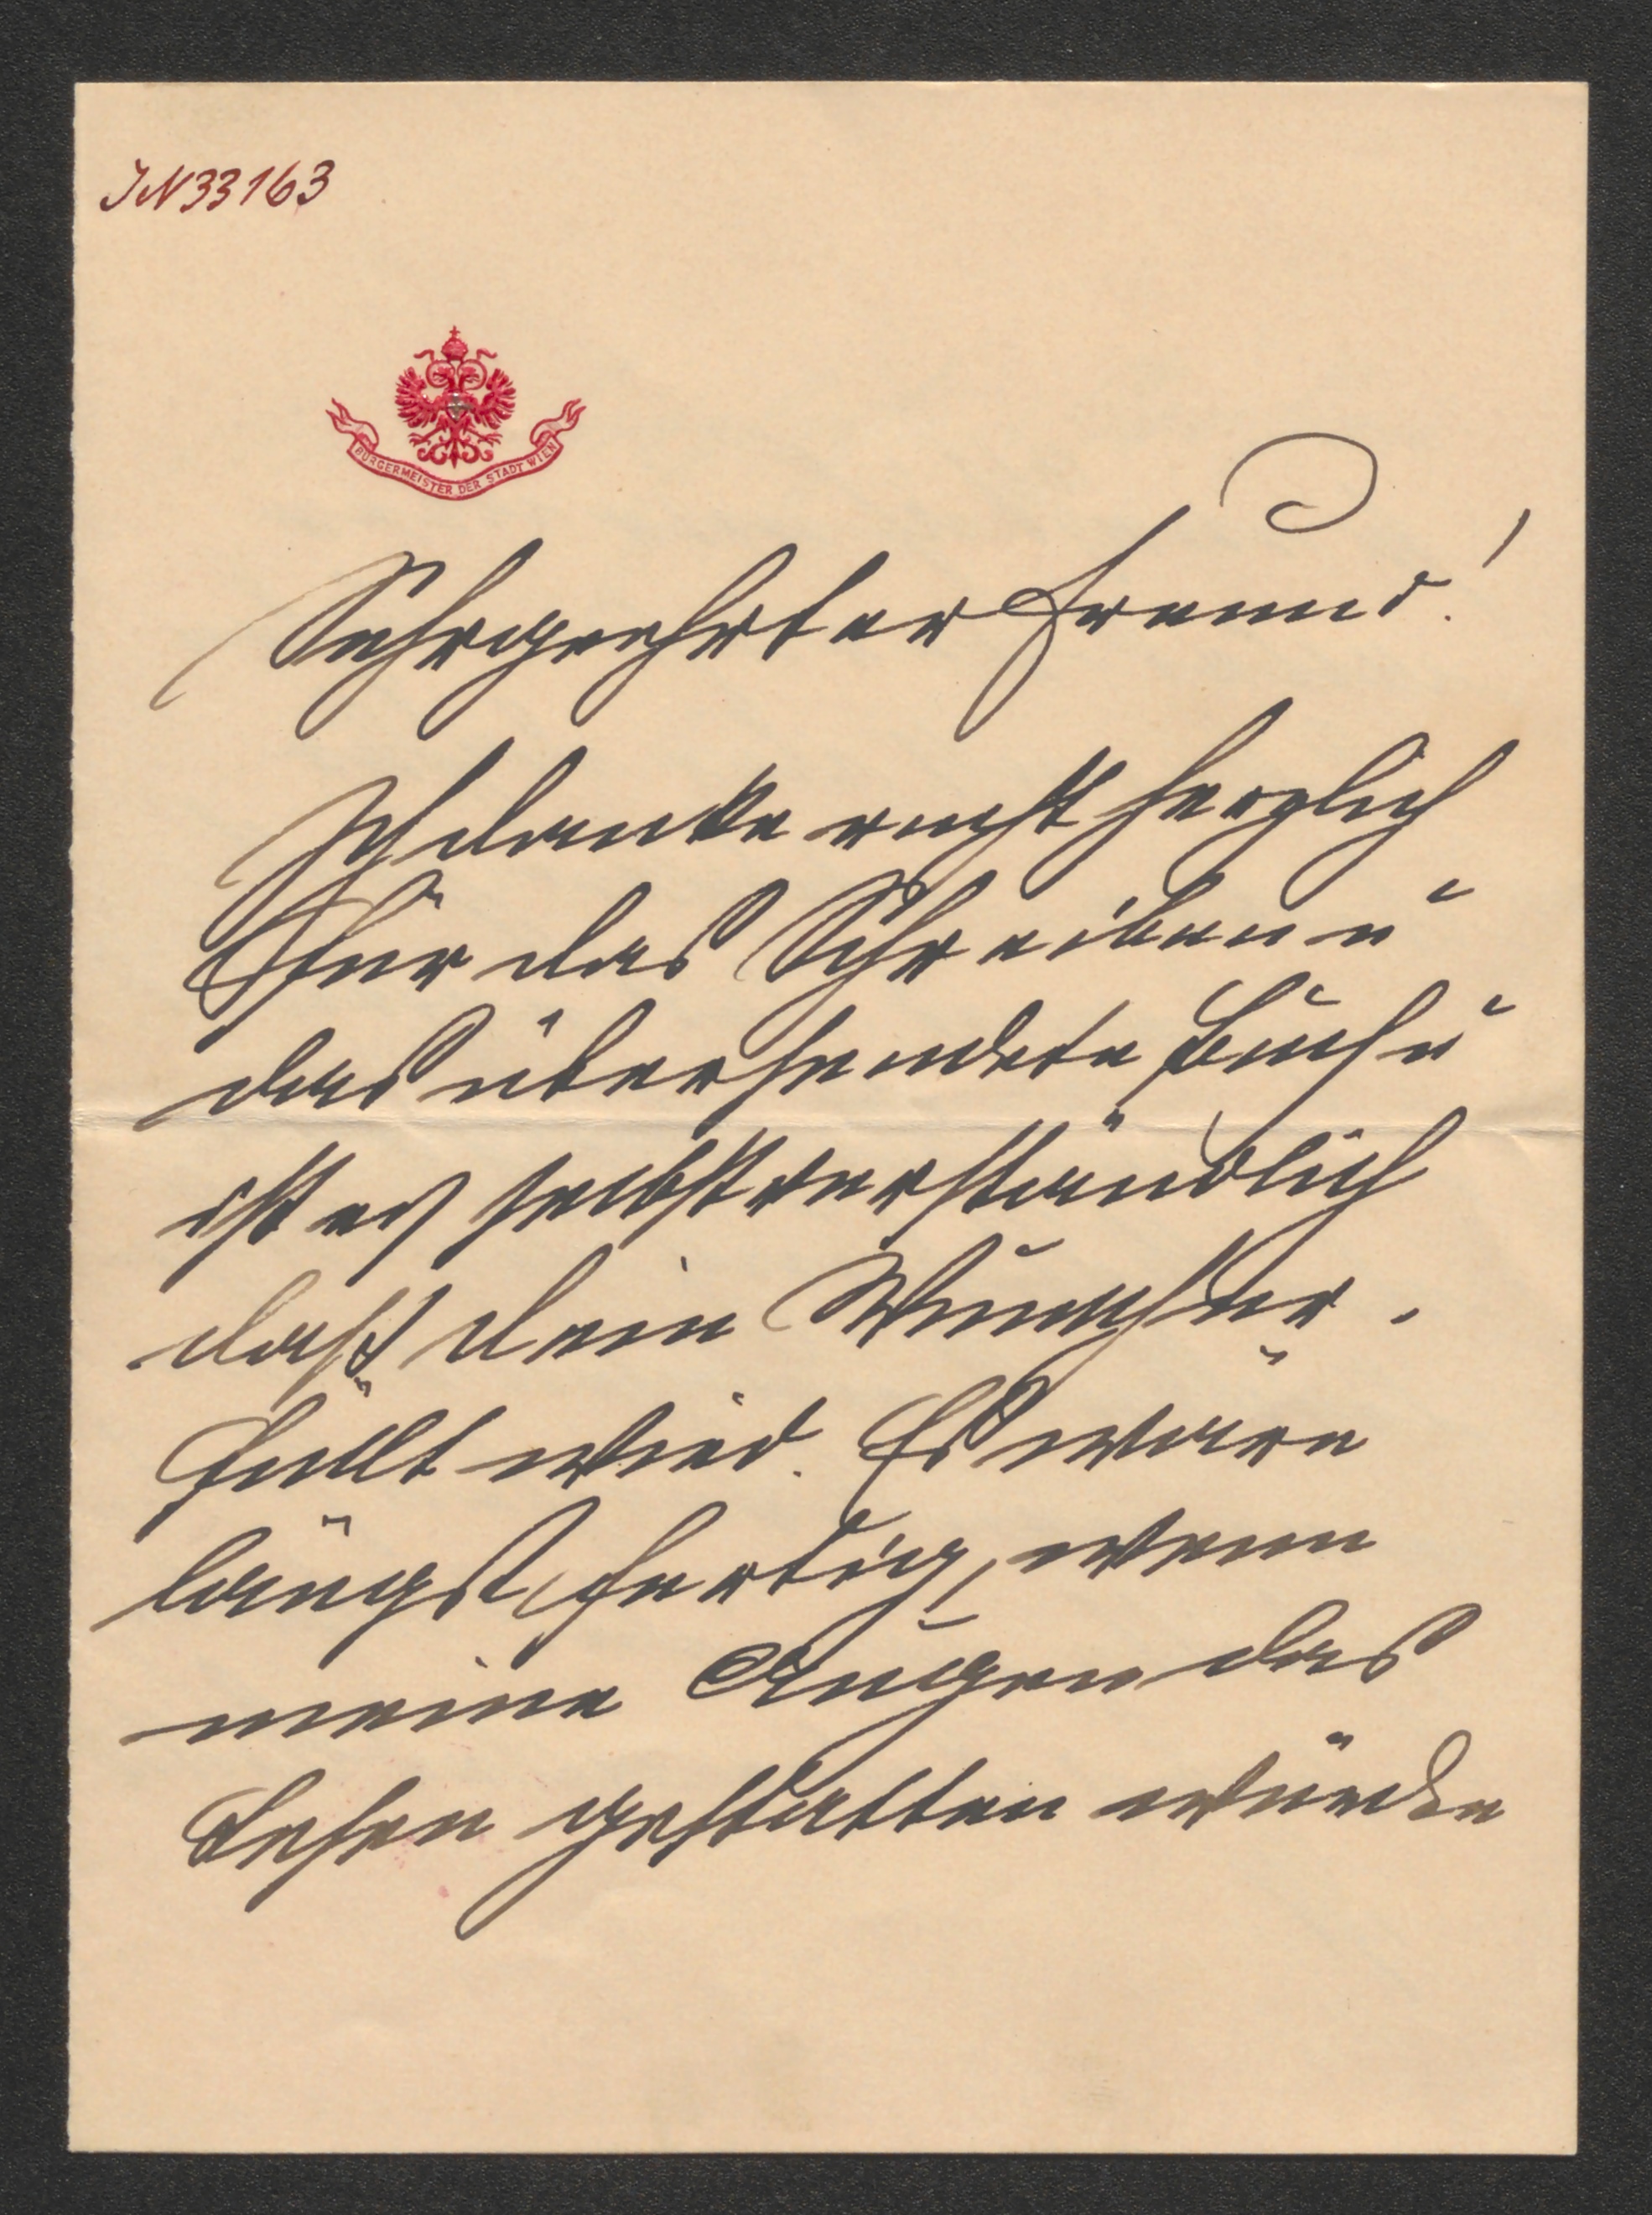 IN 33163
BÜRGERMEISTER DER STADT WIEN
Sehrgeehrter Freund!
Ich danke recht herzlich
für das Schreiben u
das übersendete Buch u
ist es selbstverständlich
daß dein Wunsch er.
füllt wird. Es wäre
längst fertig, wenn
meine Augen das
Lesen gestatten würde